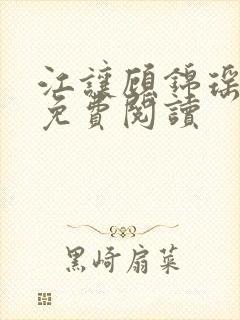 江讓顧錦瑤
免費閱讀
黑崎扇菜